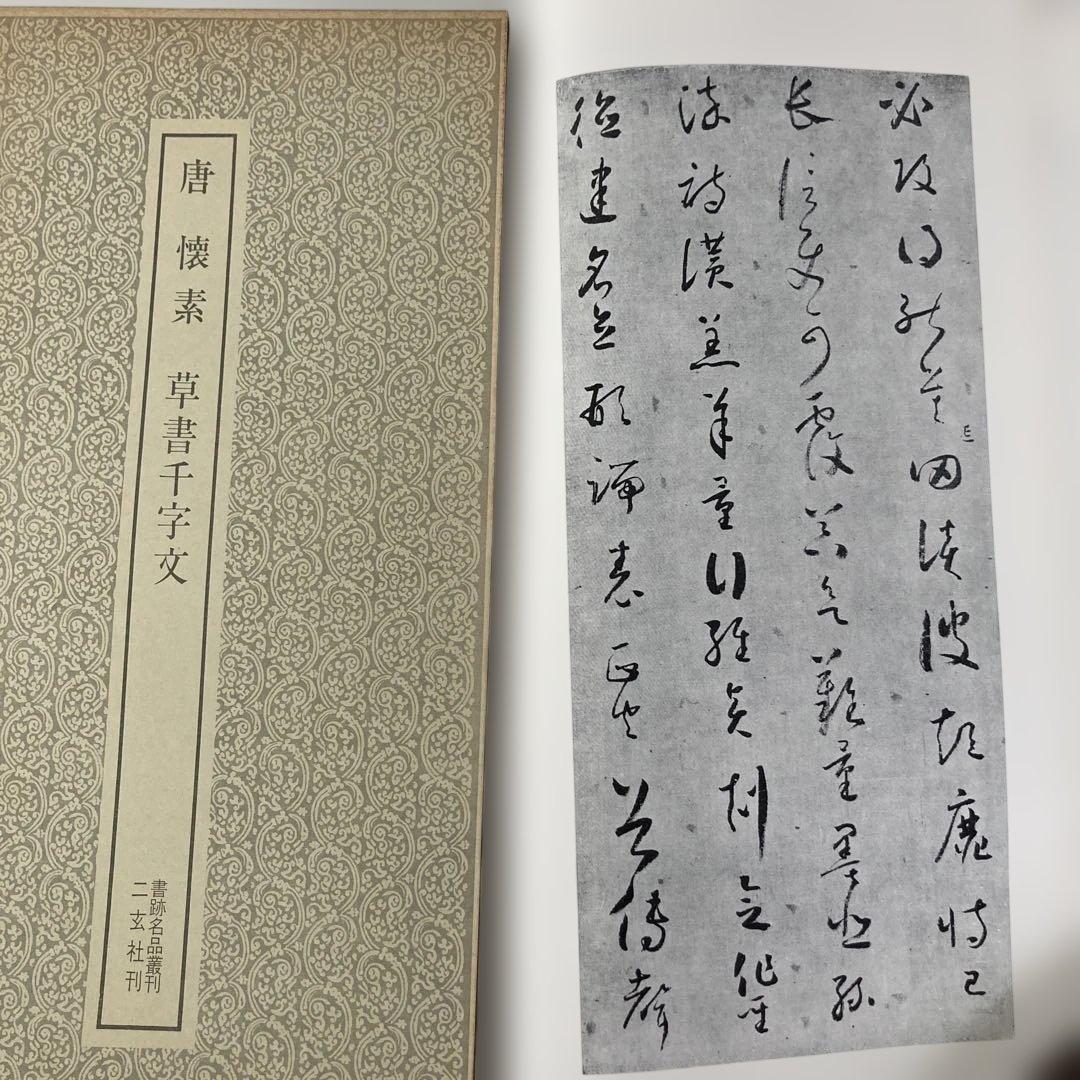 唐 懐素 草書千字文
書跡名品叢刊
二玄社刊
必改得能莫忘罔談彼短靡恃己
長信使可覆器欲難量墨悲絲
染詩讚羔羊景行維賢剋念作聖
德建名立形端表正空谷傳聲